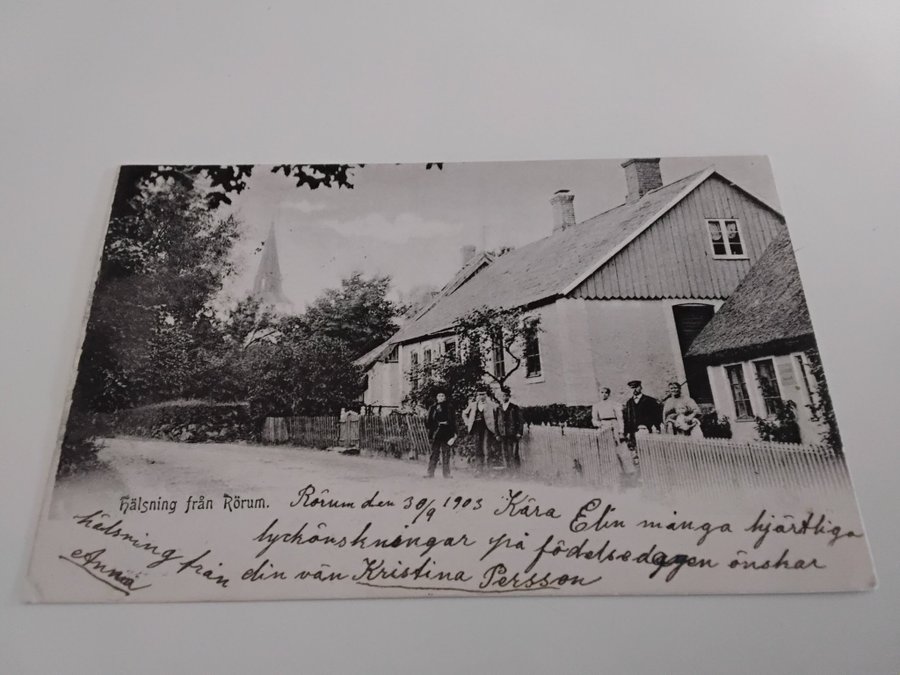 Hälsning från Rörum.
Rörum den 30/9 1903 Kära Elin många hjärtliga
lyckönskningar på födelsedagen önskar
din vän Kristina Persson
hälsning från
Anna